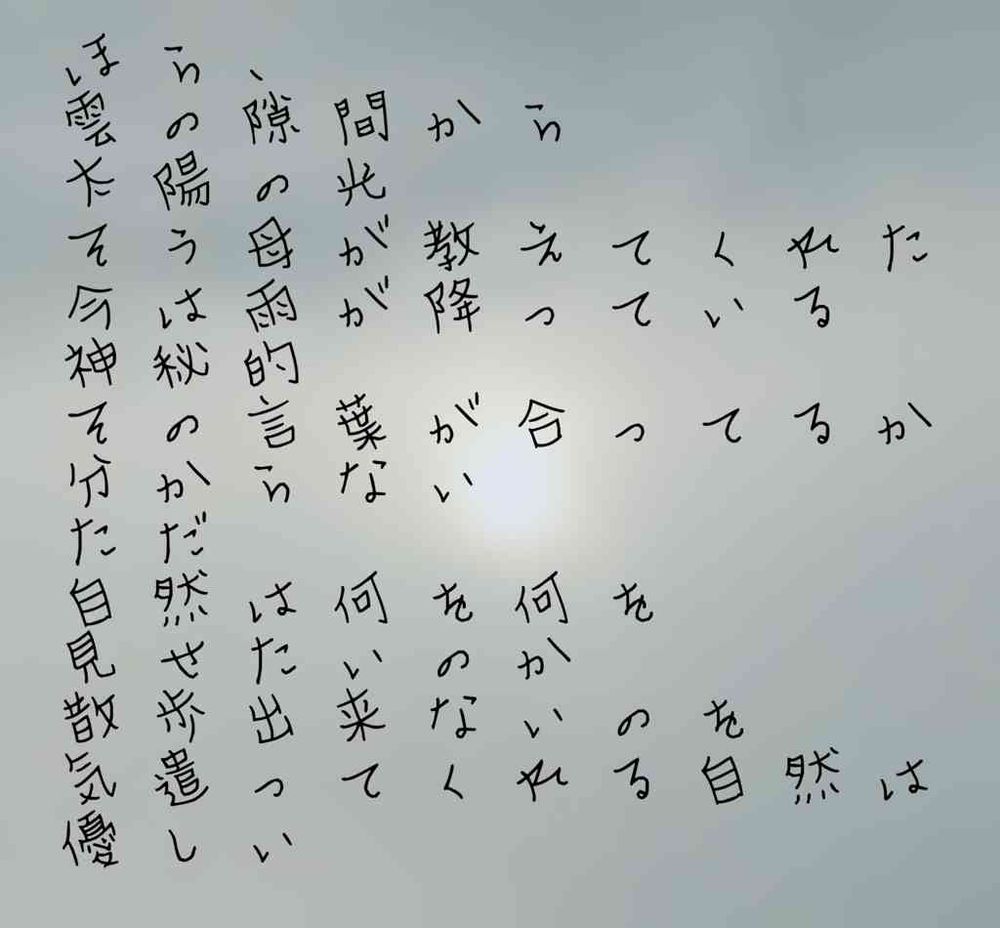 ほら、
雲の隙間から
太陽の光
そう母が教えてくれた
今は雨が降っている
神秘的
その言葉が合ってるか
分からない
ただ
自然は何を何を
見せたいのか
散歩出来ないのを
気遣ってくれる自然は
優しい